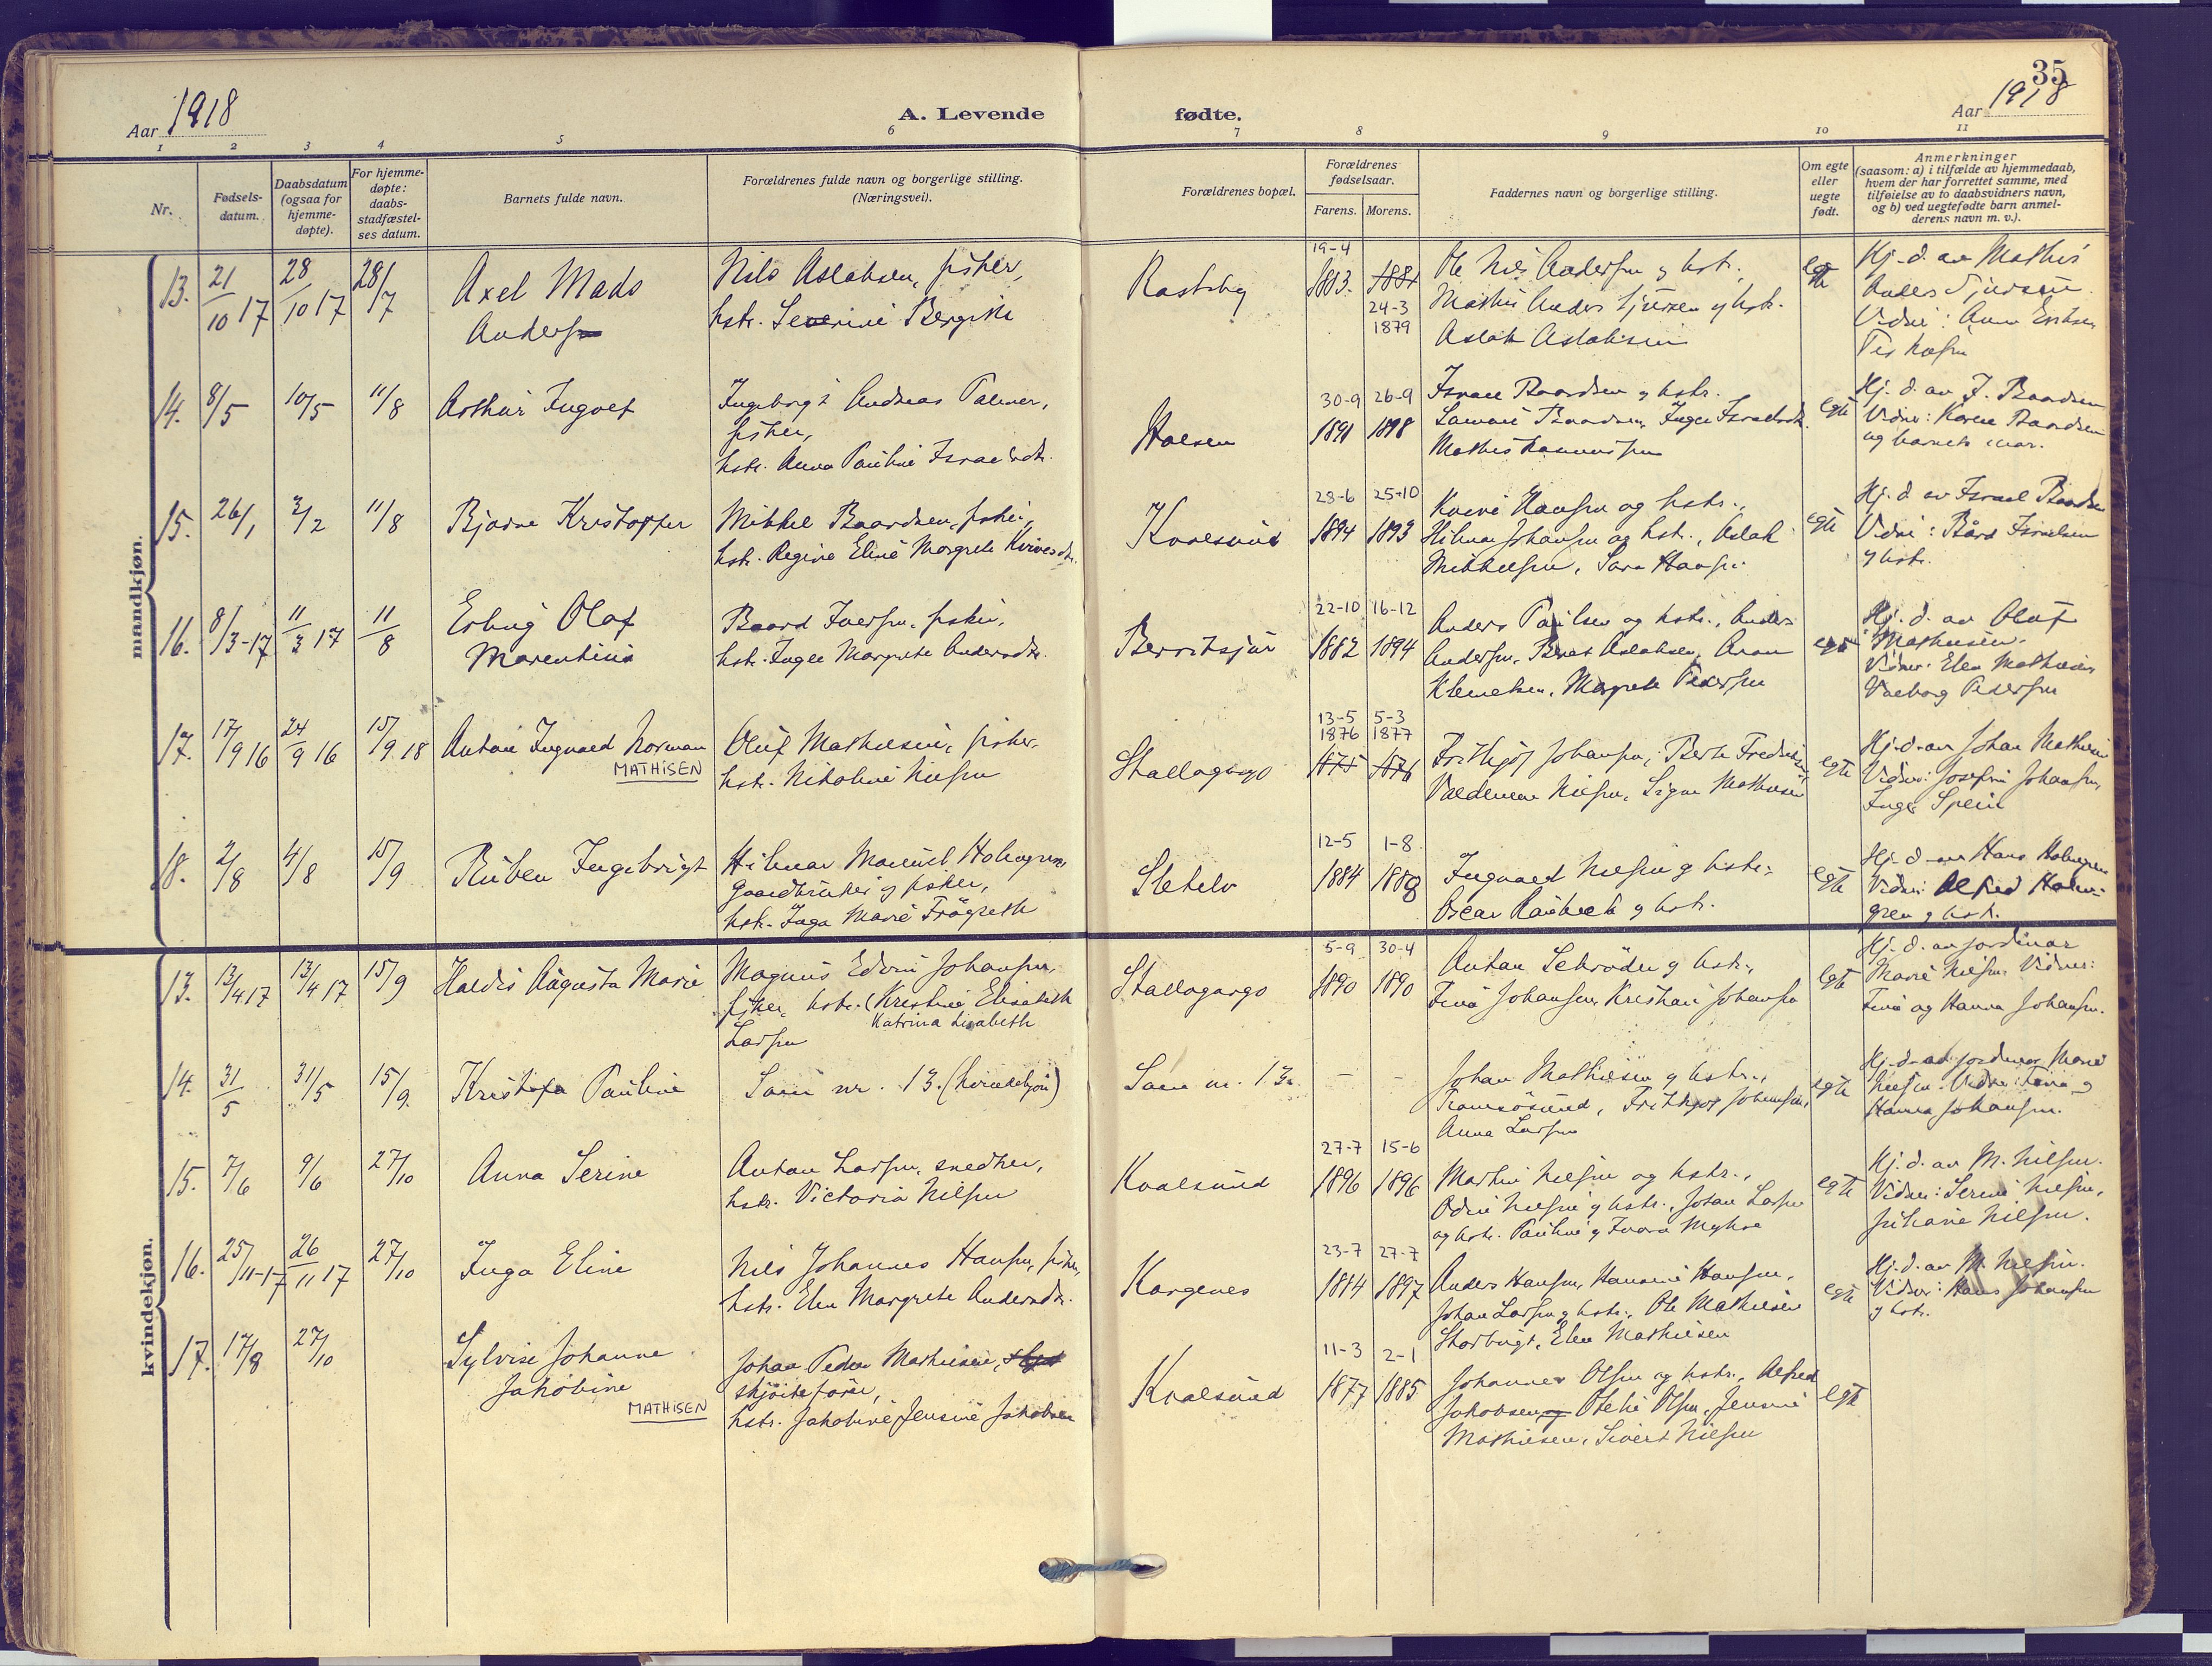 35
Aar 1918
A. Levende fødte.
Aar 1918
1 2 3 4 5 6 7 8 9 10 11
Nr.
Fødsels-
datum.
Daabsdatum
(ogsaa for
hjemme-
døpte).
For hjemme-
døpte:
daabs-
stadfæstel-
ses datum.
Barnets fulde navn.
Forældrenes fulde navn og borgerlige stilling.
(Næringsvei).
Forældrenes bopæl.
Forældrenes
fødselsaar.
Farens. Morens.
Faddernes navn og borgerlige stilling.
Om egte
eller
uegte
født.
Anmerkninger
(saasom: a) i tilfælde av hjemmedaab,
hvem der har forrettet samme, med
tilføielse av to daabsvidners navn,
og b) ved uegtefødte barn anmel-
derens navn m. v.).
mandkjøn.
13. 21/10 17 28/10 17 28/7
Axel Mads
Anders
Nils Aslaksen, fisker,
hstr. Severine
Rastsby
19-4
1883. 1881
24-3
1879
Ole Nils Andersen og hstr.
Mathis Anders Sjursen og hstr.
Aslak Aslaksen
egte
Hj. d. av Mathis
Anders Sjursen
Vidner: Anna
14. 8/5 10/5 11/8
Arthur Ingolf
Ingebrigt Andreas Palmer,
fisker,
hstr. Anna Pauline Israelsdtr.
30-9 26-9
1891 1898
Israel Baardsen og hstr.
Baardsen, Inger Israelsdtr.
egte
Hj. d. av I. Baardsen
Vidner: Karen Baardsen
og barnets mor.
15. 26/1 2/2 11/8
Bjarne Kristoffer
Mikkel Baardsen, fisker,
hstr. Regine Eline Margrete
Kvalsund
28-6 25-10
1894 1893
Hansen og hstr.,
Hilmar Johansen og hstr., Aslak
Mikkelsen, Sara Hansen
egte
Hj. d. av Israel Baardsen
Vidner: Bård Israelsen
og hstr.
16. 8/3-17 11/3 17 11/8
Erling Olaf
Marentius
Baard Iversen, fisker,
hstr. Inger Margrete Andersdtr.
22-10 16-12
1882 1894
Anders Paulsen og hstr., Anders
Andersen, Berit Aslaksen, Aron
Klemetsen, Margrete Pedersen
egte
Hj. d. av Olaf
Mathiesen.
Vidner: Elen Mathiesen
Valborg Pedersen
17. 17/9 16 24/9 16 15/9 18
Anton Ingvald Norman
MATHISEN
Oluf Mathiesen, fisker,
hstr. Nikoline Nilsen
Stallogargo
13-5 5-3
1876 1877
1875 1876
Frithjof Johansen, Berte Fredriksen
Valdemar Nilsen, Signe Mathiesen
egte
Hj. d. av Johan Mathiesen
Vidner: Josefine Johansen,
Inger Spein
18. 2/8 4/8 15/9
Ruben Ingebrigt
Hilmar Manuel Holmgren
gaardbruker og fisker,
hstr. Inga Marie
12-5 1-8
1884 1888
Ingvald Nilsen og hstr.
Oscar og hstr.
egte
Hj. d. av Hans Holmgren
Vidner: Alfred Holm-
gren og hstr.
kvindekjøn.
13. 13/4 17 13/4 17 15/9
Haldis Augusta Marie
Magnus Edvin Johansen,
fisker, hstr. (Kristine Elisabeth
Katrina Lisabeth
Larsen
Stallogargo
5-9 30-4
1890 1890
Anton Schrøder og hstr.,
Johansen, Kristian Johansen
egte
Hj. d. av jordmor
Marie Nilsen Vidner:
og Hanna Johansen.
14. 31/5 31/5 15/9
Kristofa Pauline
Som nr. 13. (kvindekjøn)
Som nr. 13.
- -
Johan Mathiesen og hstr.,
Tromsøsund, Frithjof Johansen,
Anna Larsen
egte
Hj. d. av jordmor Marie
Nilsen. Vidner: og
Hanna Johansen.
15. 7/6 9/6 27/10
Anna Serine
Anton Larsen, snedker,
hstr. Victoria Nilsen
Kvalsund
27-7 15-6
1896 1896
Martin Nilsen og hstr.,
Odin Nilsen og hstr., Johan Larsen
og hstr. Pauline og
egte
Hj. d. av M. Nilsen.
Vidner: Serine Nilsen,
Juliane Nilsen.
16. 25/11-17 26/11 17 27/10
Inga Eline
Nils Johannes Hansen, fisker,
hstr. Elen Margrete Andersdtr.
Kargenes
23-7 27-7
1884 1897
Anders Hansen, Hansine Hansen,
Johan Larsen og hstr., Ole Mathiesen
Storbugt, Elen Mathiesen
egte
Hj. d. av M. Nilsen.
Vidner: Hans Johansen
og hstr.
17. 17/8 27/10
Sylvise Johanne
Jakobine
MATHISEN
Johan Peder Mathiesen,
skjøitefører,
hstr. Jakobine Jensine Jakobsen
Kvalsund
11-3 2-1
1877 1885
Johannes Olsen og hstr., Alfred
Jakobsen og Otelie Olsen, Jensine
Mathiesen, Sivert Nilsen
egte